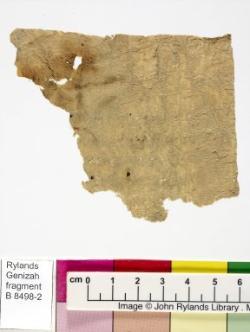 Rylands
Genizah
fragment
B 8498-2
cm 0 1 2 3 4 5 6
Image © John Rylands Library . M